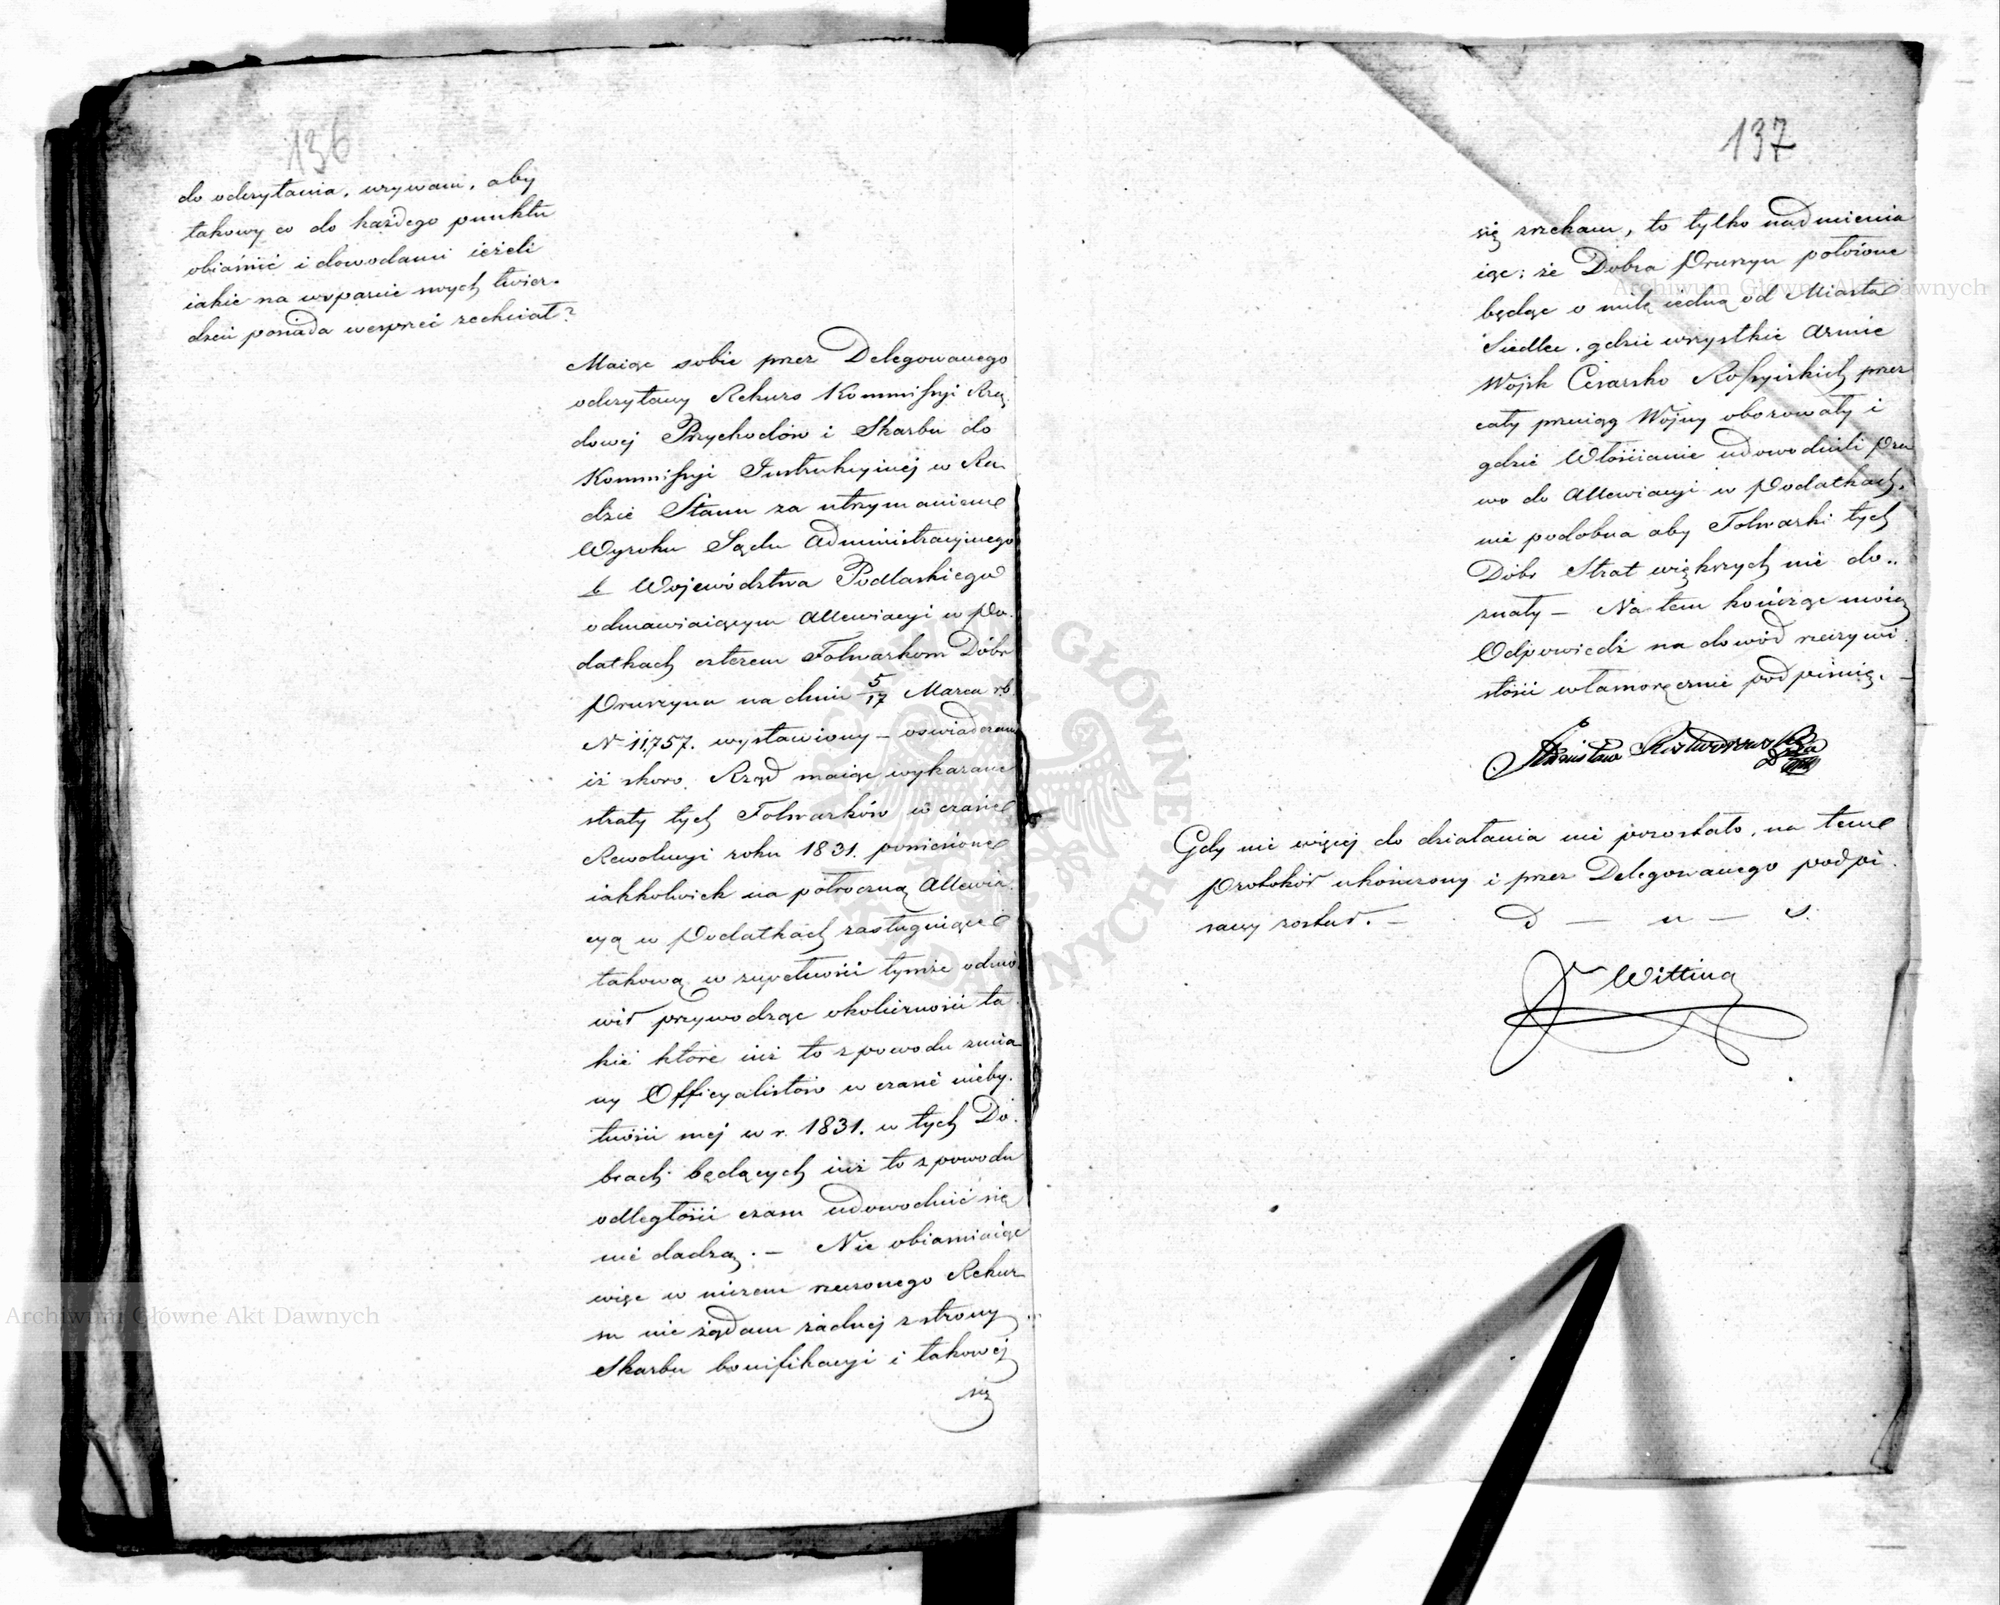 136
do odczytania, wzywam, aby
takowy co do każdego punktu
obiaśnić i dowodami ieżeli
iakie na wsparcie swych twier-
dzeń posiada wesprzeć zechciał?
Maiąc sobie przez Delegowanego
odczytany Rekurs Kommissyi Rzą-
dowej Przychodów i Skarbu do
Kommissyi Instrukcyinej w Ra-
dzie Stanu za utrzymaniem
Wyroku Sądu Administracyinego
b Województwa Podlaskiego
odmawiaiącym Allewiacyi w Po-
datkach czterem Folwarkom Dóbr
Pruszyna na dniu 5/17 Marca rb.
N 11,757. wystawiony – oswiadczam
iż skoro Rząd maiąc wykazane
straty tych Folwarków w czasie
Rewolucyi roku 1831. poniesione
iakkolwiek na półroczną Allewia-
cyą w Podatkach zasługuiące
takową w zupełności tymże odmó-
wił przywodząc okoliczności ta-
kie które iuż to z powodu zmia-
ny Officyalistów w czasie nieby-
tności mej w r. 1831. w tych Do-
brach będących iuż to z powodu
odległości czasu udowodnić się
nie dadzą. – Nie obiaśniaiąc
więc w niczem rzeczonego Rekur-
su nie żądam żadnej z strony
Skarbu bonifikacyi i takowej
się
137
się zrzekam, to tylko nadmienia
iąc; że Dobra Pruszyn położone
będąc o milę iedną od Miasta
Siedlec, gdzie wszystkie Armie
Wojsk Cesarsko Rossyiskich przez
cały przeciąg Wojny obozowały i
gdzie Włościanie udowodnili Pra
wo do Allewiacyi w Podatkach,
nie podobna aby Folwarki tych
Dóbr Strat większych nie do..
znały – Na tem kończąc moię
Odpowiedź na dowód rzeczywi
stości własnoręcznie podpisuię. –
Stanisław
Gdy nic więcej do działania nie pozostało, na tem
Protokół ukończony i przez Delegowanego podpi-
sany został. – D – u – s.
Witting
Archiwum Główne Akt Dawnych
Archiwum Główne Akt Dawnych
ARCHIWUM GŁÓWNE AKT DAWNYCH